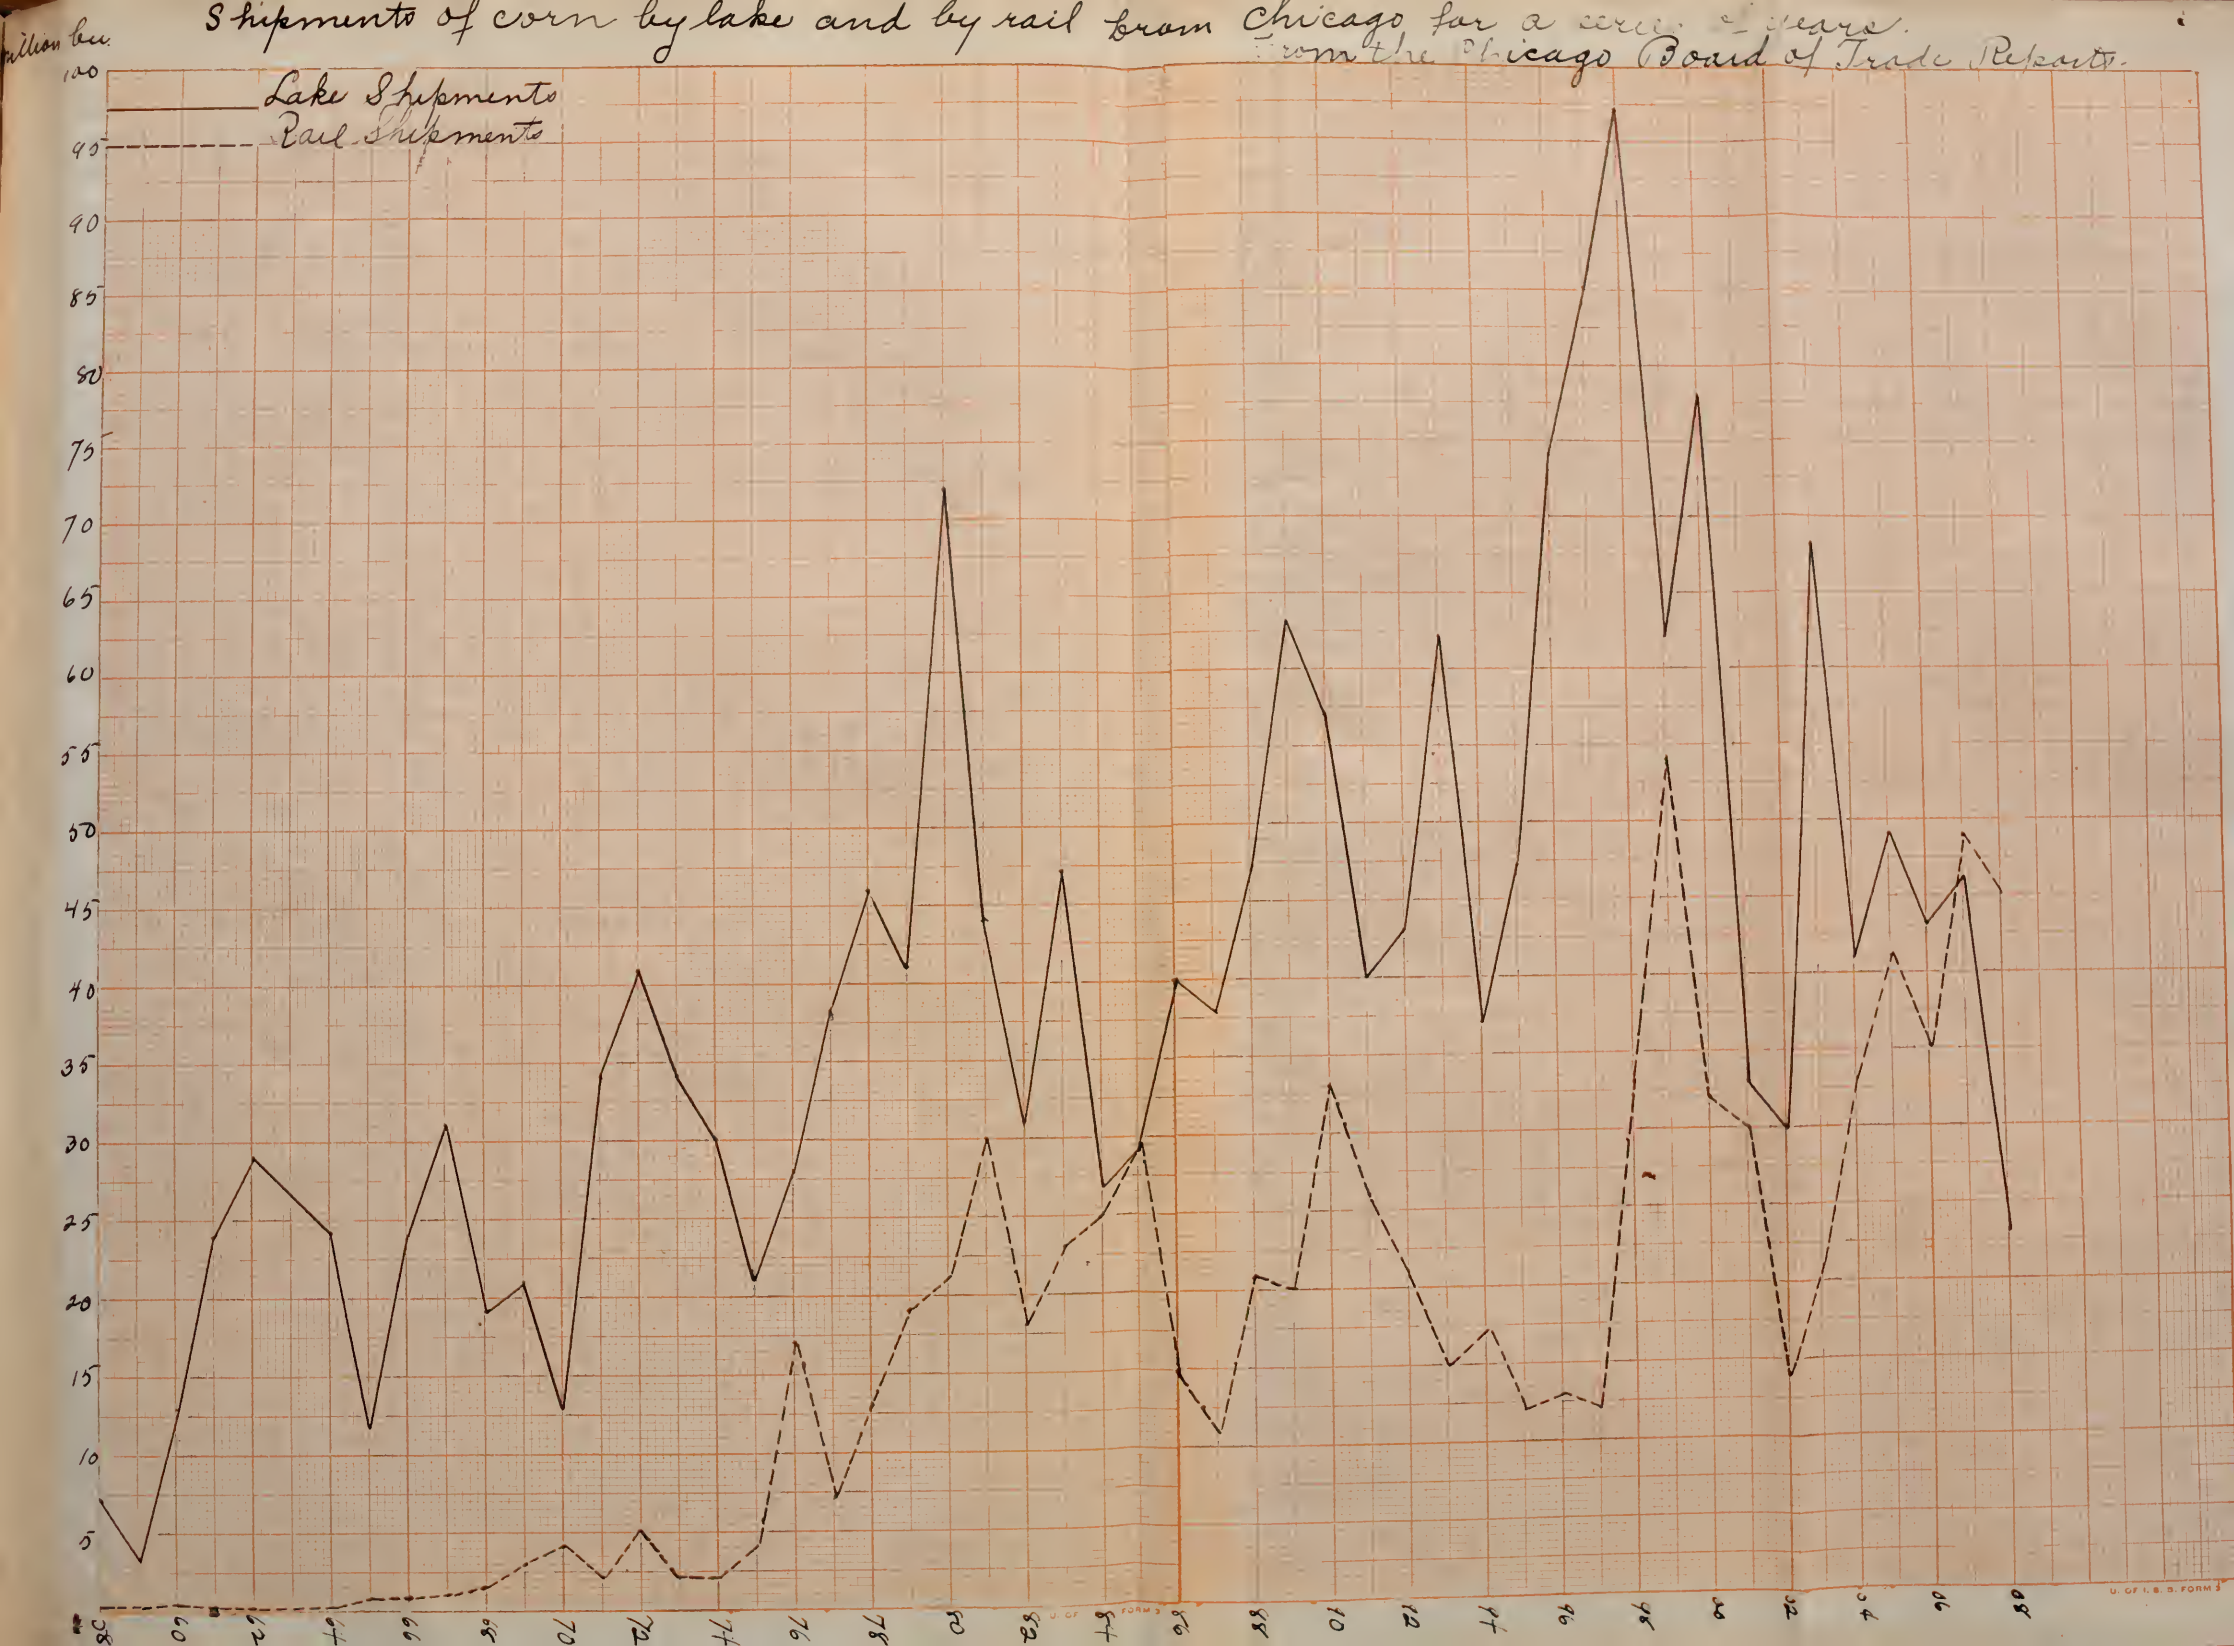 Shipments of corn by lake and by rail from Chicago for a years.
from the Chicago Board of Trade Reports.
bu.
Lake Shipments
Rail Shipments
100
95
90
85
80
75
70
65
60
55
50
45
40
35
30
25
20
15
10
5
58 60 62 64 66 68 70 72 74 76 78 80 82 84 86 88 90 92 94 96 98 00 02 04 06 08
U. OF FORM 3
U. OF I. S. S. FORM 3